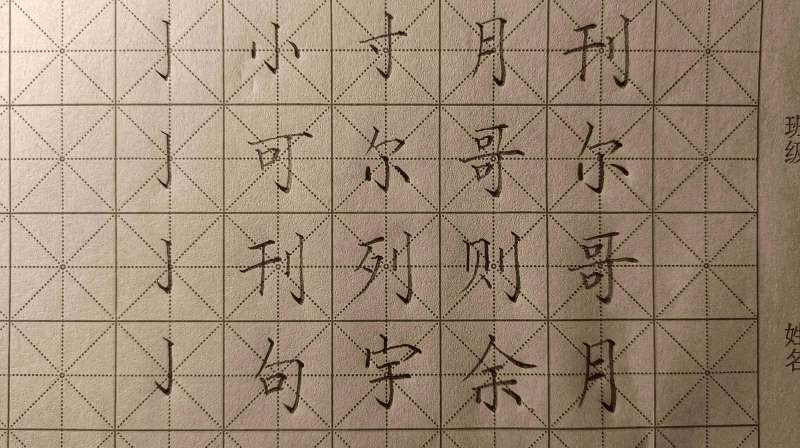 亅 小 寸 月 刊
亅 可 尔 哥 尔
亅 刊 列 则 哥
亅 句 宇 余 月
班级
姓名